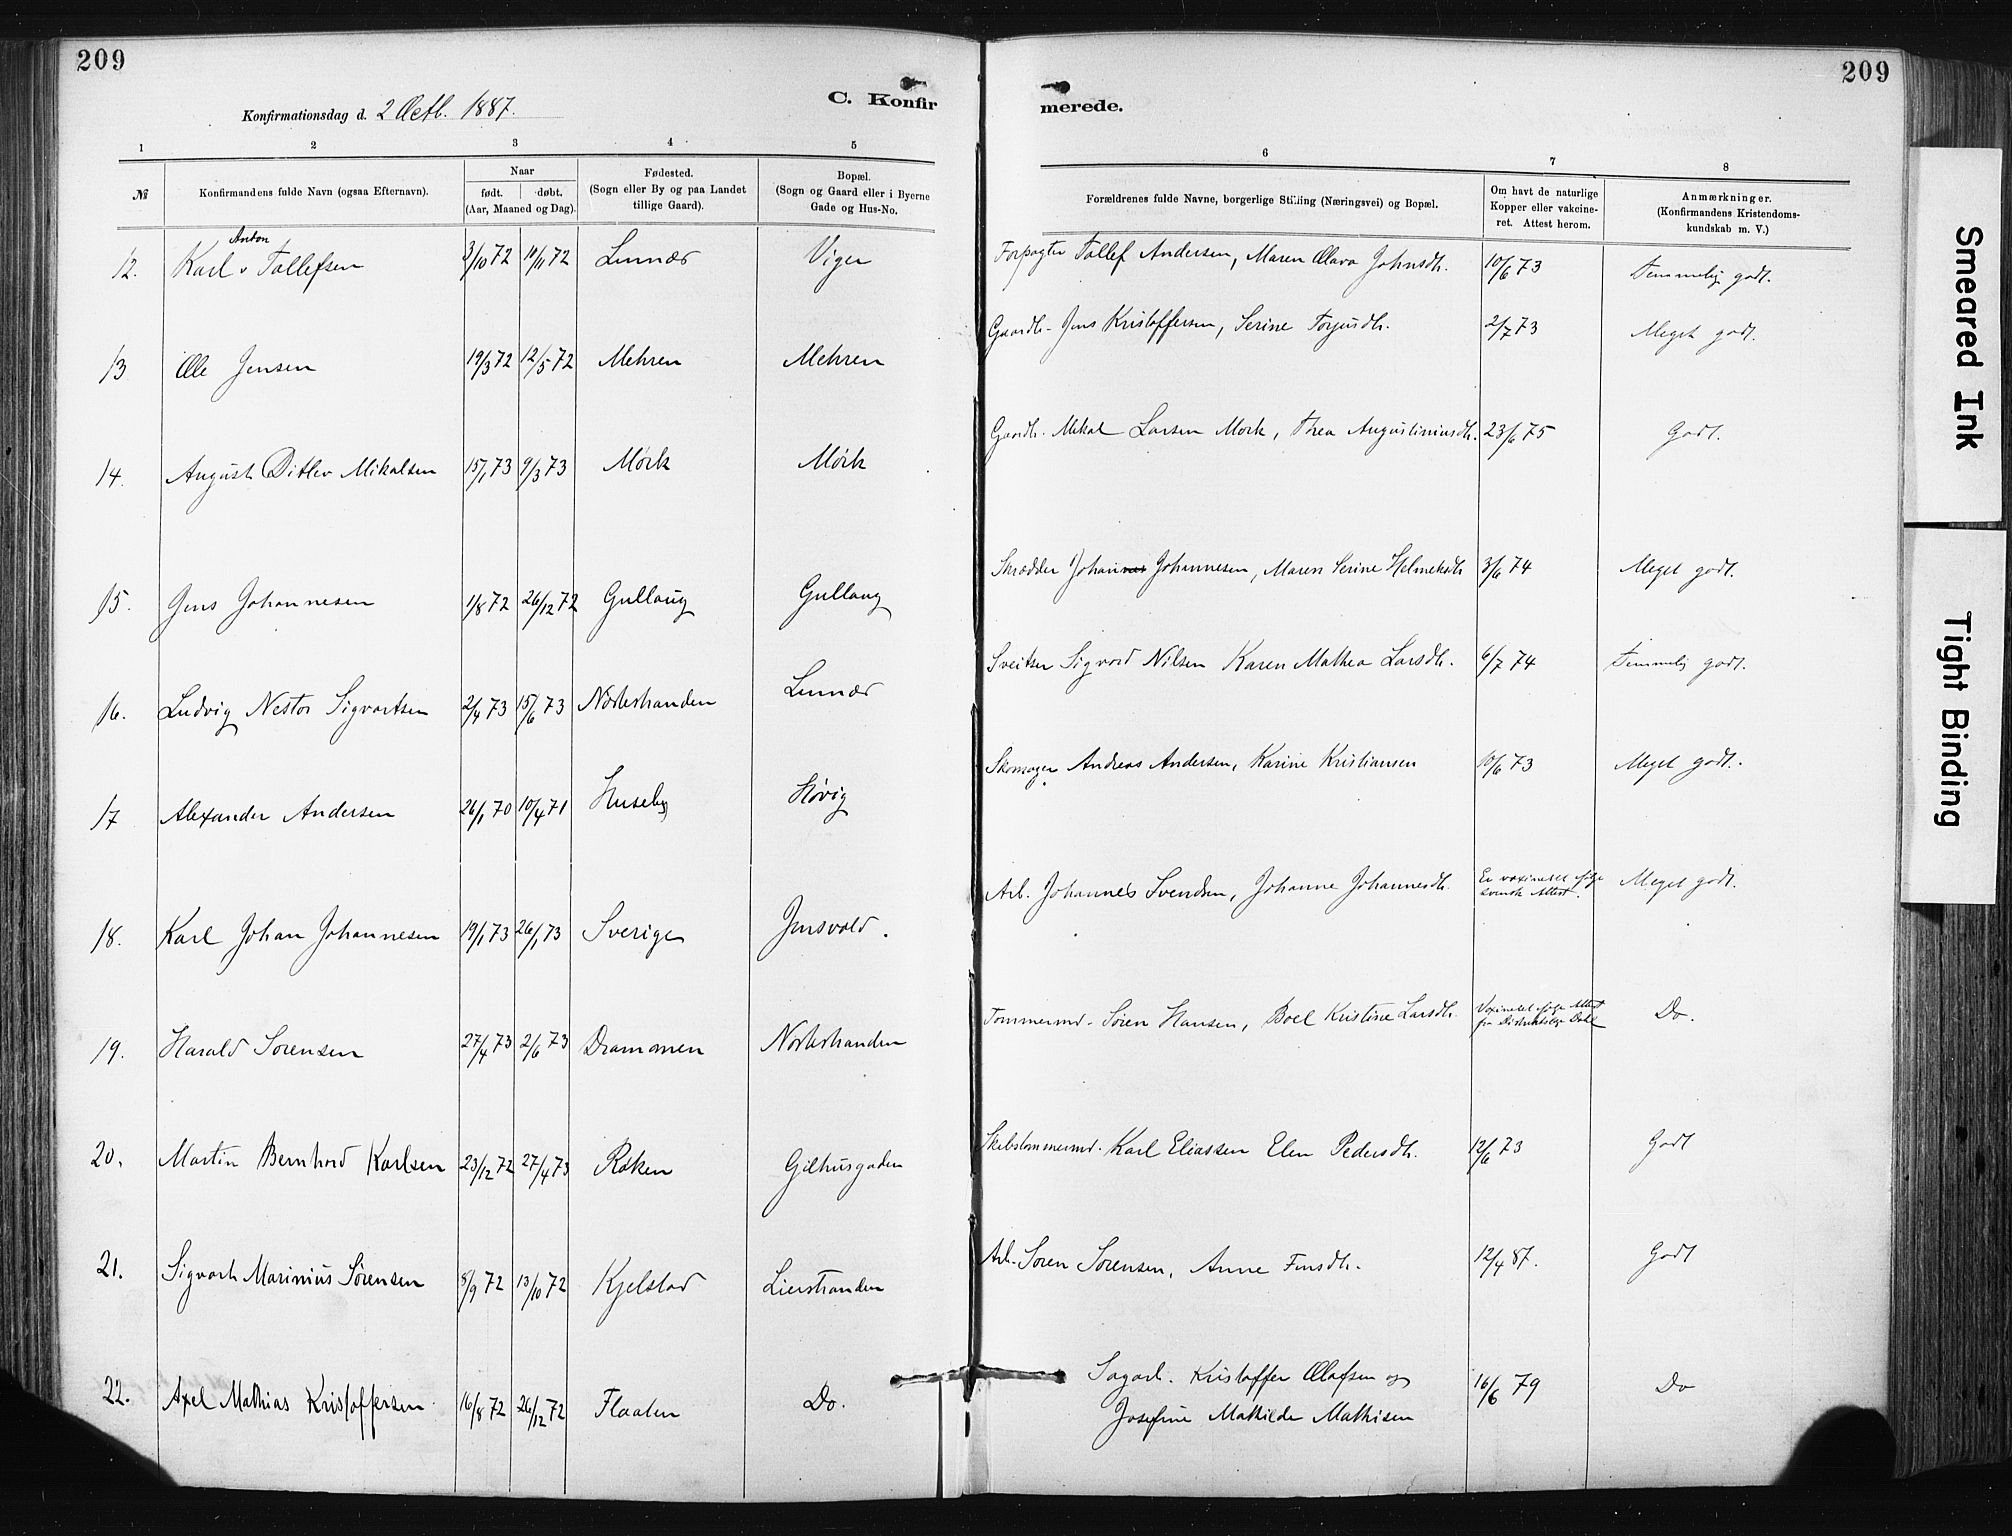 209
Konfirmationsdag d. 2 Octb. 1887.
C. Konfir
1 2 3 4 5
№
Konfirmandens fulde Navn (ogsaa Efternavn).
Naar
født. døbt.
(Aar, Maaned og Dag).
Fødested.
(Sogn eller By og paa Landet
tillige Gaard).
Bopæl.
(Sogn og Gaard eller i Byerne
Gade og Hus-No.
209
merede.
6 7 8
Forældrenes fulde Navne, borgerlige Stilling (Næringsvei) og Bopæl.
Om havt de naturlige
Kopper eller vakcine-
ret. Attest herom.
Anmærkninger.
(Konfirmandens Kristendoms-
kundskab m. V.)
Anton
12. Karl v Tollefsen 3/10 72 10/11 72 Linnæs Viger Forpagter Tollef Andersen, Maren Olava Johnsdtr. 10/6 73 Temmelig godt.
13 Ole Jensen 19/3 72 12/5 72 Mehren Mehren Gaardb. Jens Kristoffersen, Serine Torjusdtr. 2/7 73 Meget godt.
14. August Ditlev Mikalsen 15/1 73 9/3 73 Mørk Mørk Gaardb. Mikal Larsen Mørk, Thea Augustiniusdtr. 23/6 75 Godt.
15. Jens Johannesen 1/8 72 26/12 72 Gullaug Gullaug Skrædder Johannes Johannesen, Maren Serine Helmeksdtr 3/6 74 Meget godt.
16. Ludvig Nestor Sigvartsen 2/4 73 15/6 73 Nøstestranden Linnæs Sveitser Sigvard Nilsen Karen Mathea Larsdtr. 6/7 74 Temmelig godt.
17 Alexander Andersen 26/1 70 10/4 71 Huseby Høvig Skomager Andreas Andersen, Karine Kristiansen 10/6 73 Meget godt.
18. Karl Johan Johannesen 19/1 73 26/1 73 Sverige Jensvold. Arb. Johannes Svendsen, Johanne Johannesdtr. Er vaxineret ifølge svensk Attest. Meget godt.
19. Harald Sørensen 27/4 73 2/6 73 Drammen Nøstestranden Tømmermd. Søren Hansen, Boel Kristine Larsdtr. Vaxineret ifølge Attest fra Distriktslæge Dahl Do.
20. Martin Bernhard Karlsen 23/12 72 27/4 73 Røken Gilhusgaden Skibstømmermd. Karl Eliassen Elen Pedersdtr. 12/6 73 Godt
21. Sigvart Marinius Sørensen 8/9 72 13/10 72 Kjelstad Lierstranden Arb. Søren Sørensen, Anne Finsdtr. 12/4 87. Godt
22. Axel Mathias Kristoffersen 16/8 72 26/12 72 Flaaten Do. Sagarb. Kristoffer Olafsen og
Josefine Mathilde Mathisen 16/6 79 Do
Smeared Ink
Tight Binding